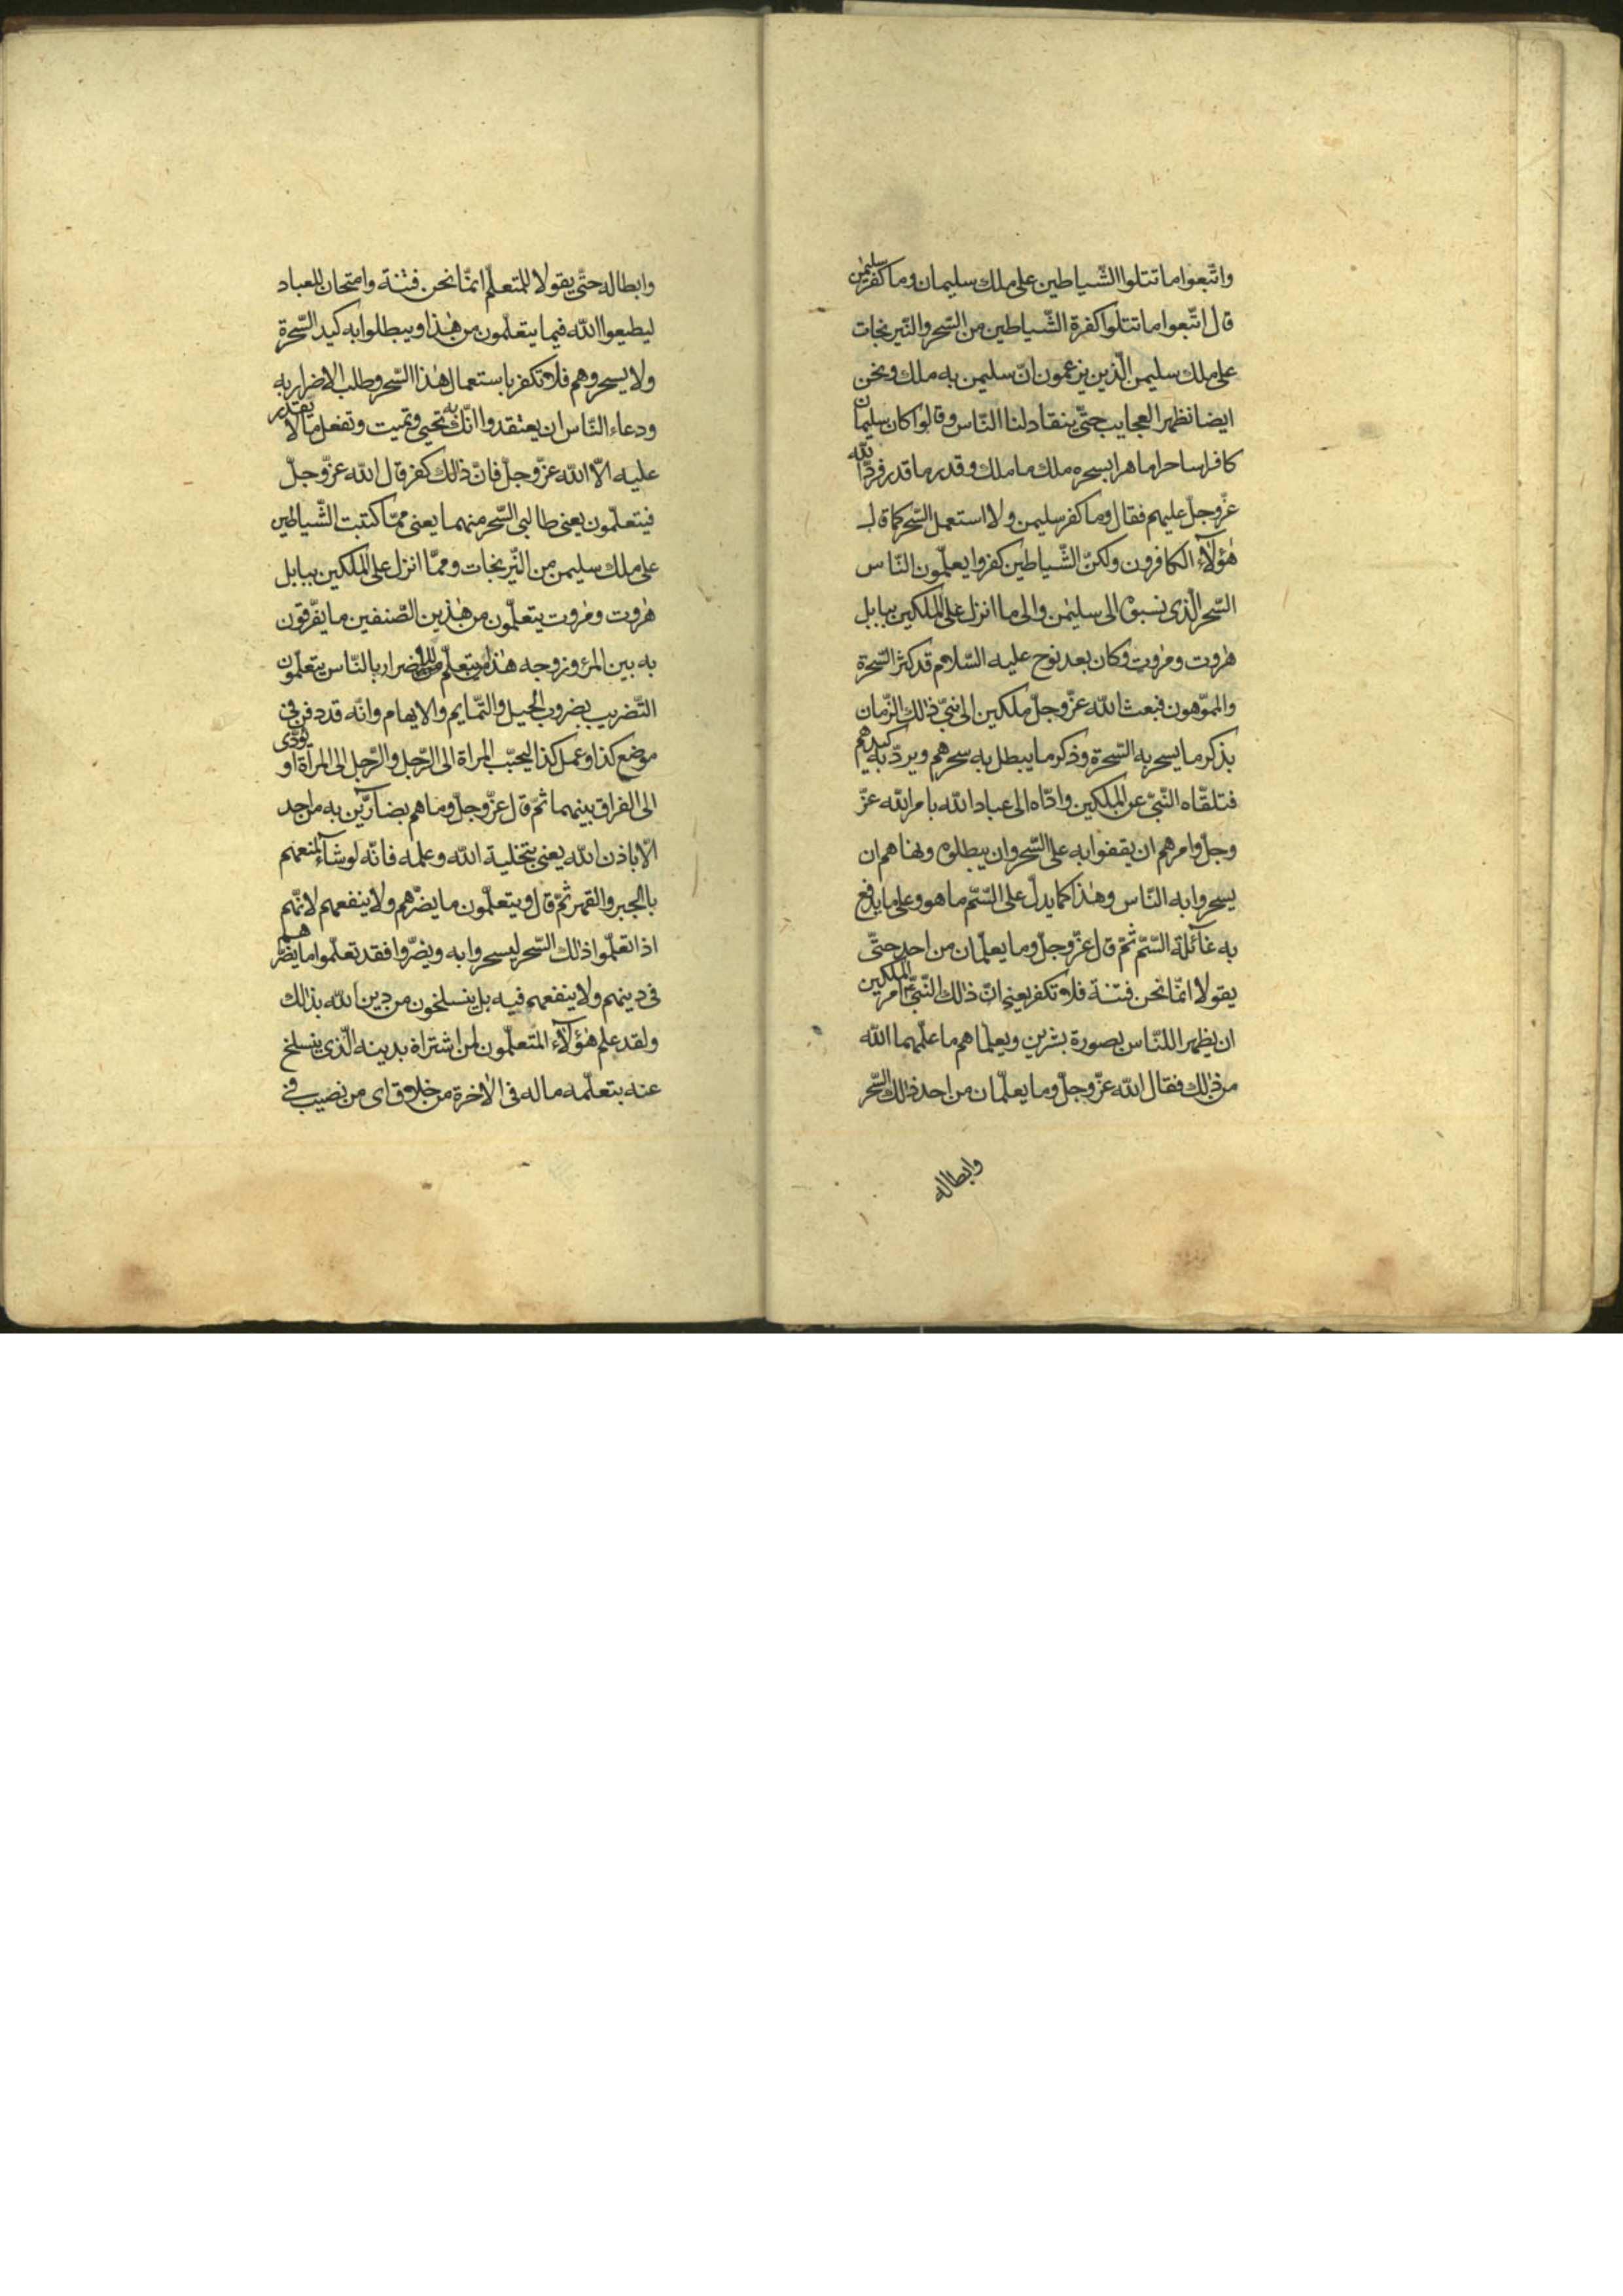 واتّبعوا ما تتلوا الشّياطين على ملك سليمان وما كفر سليمن
قال اتّبعوا ما تتلوا كفرة الشّياطين من السّحر والنّيرنجات
على ملك سليمن الّذين يزعمون انّ سليمن به ملك ونحن
ايضا نظهر العجايب حتّى ينقاد لنا النّاس وقالوا كان سليمان
كافرا ساحرا ماهرا بسحره ملك ما ملك وقدر ما قدر فردّ الله
عزّ وجلّ عليهم فقال وما كفر سليمن ولا استعمل السّحر كما قال
هٰؤلآء الكافرون ولكنّ الشّياطين كفروا يعلّمون النّاس
السّحر الّذى نسبوه الى سليمٰن والى ما انزل على الملكين ببابل
هٰروت ومٰروت وكان بعد نوح عليه السّلام قد كثر السّحرة
والمموّهون فبعث الله عزّ وجلّ ملكين الى نبىّ ذلك الزّمان
بذكر ما يسحر به السّحرة وذكر ما يبطل به سحرهم ويردّ به كيدهم
فتلقّاه النّبىّ عن الملكين وادّاه الى عباد الله بامر الله عزّ
وجلّ وامرهم ان يقفوا به على السّحر وان يبطلوه ونهاهم ان
يسحروا به النّاس وهٰذا كما يدلّ على السّمّ ما هو وعلى ما يدفع
به غآئلة السّمّ ثمّ قال عزّ وجلّ وما يعلّمان من احد حتّى
يقولا انّما نحن فتنة فلا تكفر يعنى انّ ذلك النّبىّ امر الملكين
ان يظهرا للنّاس بصورة بشرين ويعلّماهم ما علّمهما الله
من ذلك فقال الله عزّ وجلّ وما يعلّمان من احد ذلك السّحر
وابطاله
وابطاله حتّى يقولا للمتعلّم انمّا نحن فتنة وامتحان للعباد
ليطيعوا الله فيما يتعلّمون من هٰذا ويبطلوا به كيد السّحرة
ولا يسحروهم فلا تكفر باستعمال هٰذا السّحر وطلب الاضرار به
ودعاء النّاس ان يعتقدوا انّك به تحيى وتميت وتفعل ما لا يقدر
عليه الّا الله عزّ وجلّ فانّ ذلك كفر قال الله عزّ وجلّ
فيتعلّمون يعنى طالبى السّحر منهما يعنى ممّا كتبت الشّياطين
على ملك سليمن من النّيرنجات وممّا انزل على الملكين ببابل
هٰروت ومٰروت يتعلّمون من هٰذين الصّنفين ما يفّرقون
به بين المرء وزوجه هٰذا من يتعلّم للاضرار بالنّاس يتعلّمون
التّضريب بضروب الحيل والتّمايم والايهام وانّه قد دفن فى
موضع كذا وعمل كذا ليحبّب المراة الى الرّجل والرّجل الى المراة او يؤدّى
الى الفراق بينهما ثمّ قال عزّ وجلّ وما هم بضآرّين به من احد
الّا باذن الله يعنى بتخلية الله وعلمه فانّه لو شآء لمنعهم
بالجبر والقهر ثمّ قال ويتعلّمون ما يضرّهم ولا ينفعهم لانّهم
اذا تعلّموا ذلك السّحر ليسحروا به ويضرّوا فقد تعلّموا ما يضرّهم
فى دينهم ولا ينفعهم فيه بل ينسلخون من دين الله بذلك
ولقد علم هٰؤلآء المتعلّمون لمن اشتراه بدينه الّذى ينسلخ
عنه بتعلّمه ما له فى الاٰخرة من خلاق اى من نصيب فى